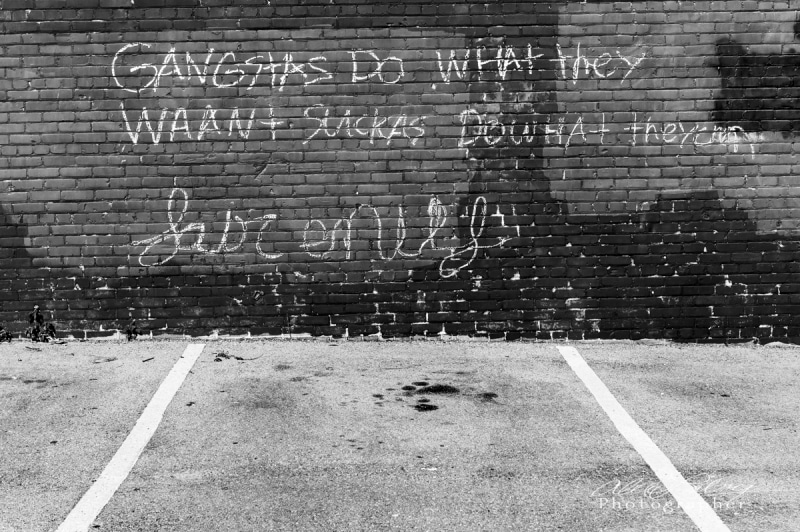 GANGStAS DO WHAt they
WAANt SUCKAS DOWHAt they can
Photographer